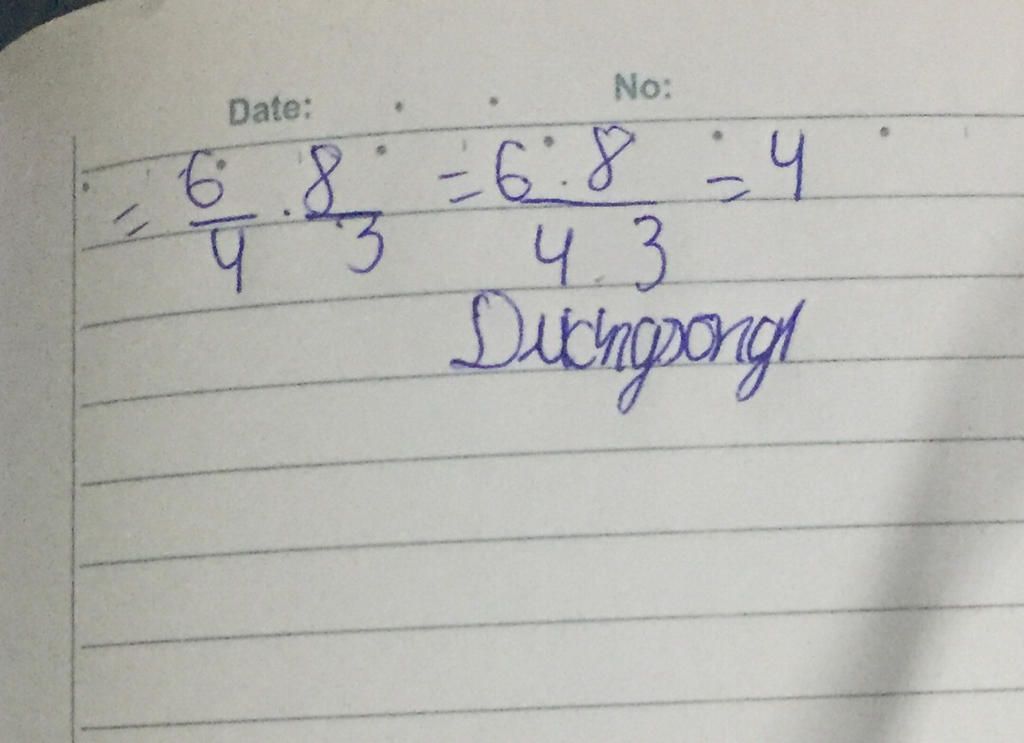 Date: No:
= 6/4 . 8/3 = 6 . 8 / 4 . 3 = 4
Duongsongl